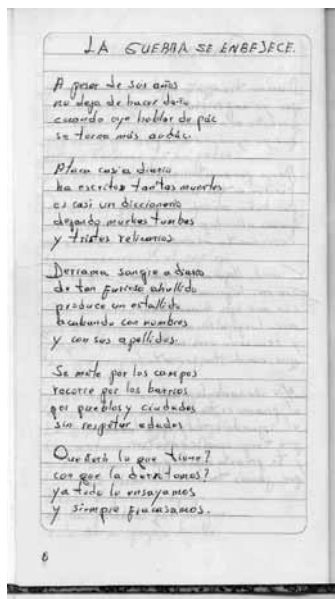 LA GUERRA SE ENBEJECE.
A pesar de sus años
no deja de hacer daño
cuando oye hablar de paz
se torna más audáz.
Ataca casi a diario
ha escritos tantas muertes
es casi un diccionario
dejando muchas tumbas
y tristes relicarios
Derrama sangre a diario
de tan furioso ahullido
produce un estallido
acabando con nombres
y con sus apellidos.
Se mete por los campos
recorre por los barrios
por pueblos y ciudades
sin respetar edades
lo que tiene?
con que la
ya todo lo ensayamos
y siempre fracasamos.
6